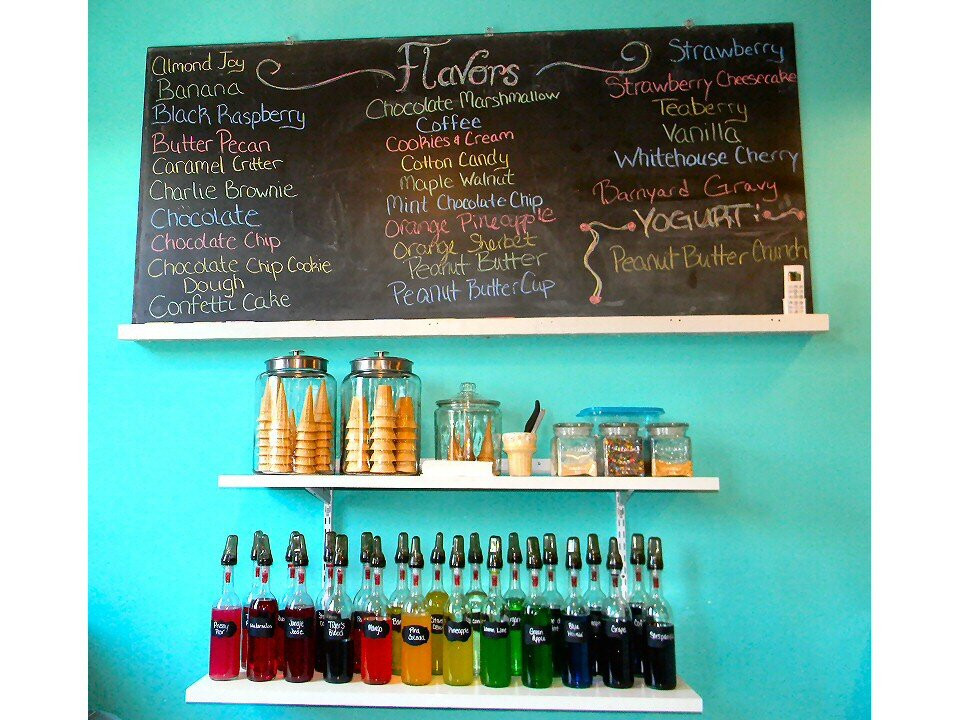 Flavors
Almond Joy
Banana
Black Raspberry
Butter Pecan
Caramel Critter
Charlie Brownie
Chocolate
Chocolate Chip
Chocolate Chip Cookie
Dough
Confetti Cake
Chocolate Marshmallow
Coffee
Cookies & Cream
Cotton Candy
Maple Walnut
Mint Chocolate Chip
Orange Pineapple
Orange Sherbet
Peanut Butter
Peanut Butter Cup
Strawberry
Strawberry Cheesecake
Teaberry
Vanilla
Whitehouse Cherry
Barnyard Gravy
YOGURT:
Peanut Butter Crunch
Tiger's
Blood
Mango
Pina
Colada
Pineapple
Green
Apple
Grape